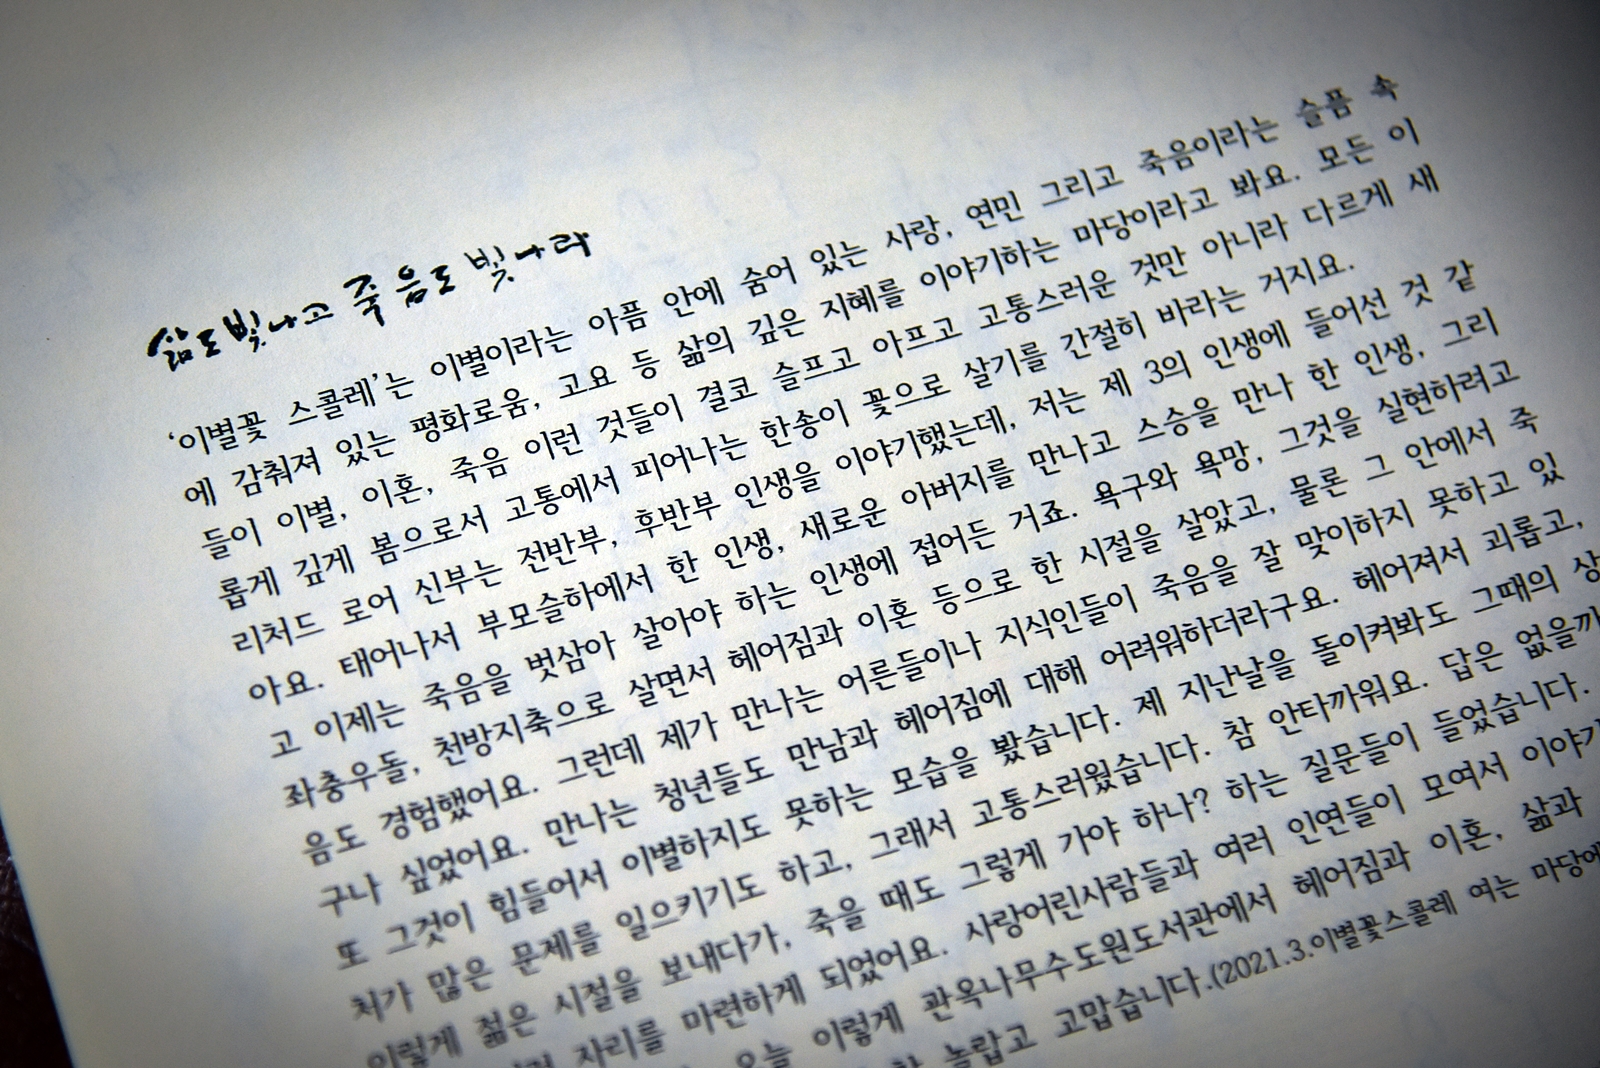 삶도 빛나고 죽음도 빛나라
‘이별꽃 스콜레’는 이별이라는 아픔 안에 숨어 있는 사랑, 연민 그리고 죽음이라는 슬픔 속
에 감춰져 있는 평화로움, 고요 등 삶의 깊은 지혜를 이야기하는 마당이라고 봐요. 모든 이
들이 이별, 이혼, 죽음 이런 것들이 결코 슬프고 아프고 고통스러운 것만 아니라 다르게 새
롭게 깊게 봄으로서 고통에서 피어나는 한송이 꽃으로 살기를 간절히 바라는 거지요.
리처드 로어 신부는 전반부, 후반부 인생을 이야기했는데, 저는 제 3의 인생에 들어선 것 같
아요. 태어나서 부모슬하에서 한 인생, 새로운 아버지를 만나고 스승을 만나 한 인생, 그리
고 이제는 죽음을 벗삼아 살아야 하는 인생에 접어든 거죠. 욕구와 욕망, 그것을 실현하려고
좌충우돌, 천방지축으로 살면서 헤어짐과 이혼 등으로 한 시절을 살았고, 물론 그 안에서 죽
음도 경험했어요. 그런데 제가 만나는 어른들이나 지식인들이 죽음을 잘 맞이하지 못하고 있
구나 싶었어요. 만나는 청년들도 만남과 헤어짐에 대해 어려워하더라구요. 헤어져서 괴롭고,
또 그것이 힘들어서 이별하지도 못하는 모습을 봤습니다. 제 지난날을 돌이켜봐도 그때의 상
처가 많은 문제를 일으키기도 하고, 그래서 고통스러웠습니다. 참 안타까워요. 답은 없을까
이렇게 젊은 시절을 보내다가, 죽을 때도 그렇게 가야 하나? 하는 질문들이 들었습니다.
자리를 마련하게 되었어요. 사랑어린사람들과 여러 인연들이 모여서 이야기
오늘 이렇게 관옥나무수도원도서관에서 헤어짐과 이혼, 삶과
놀랍고 고맙습니다.(2021.3.이별꽃스콜레 여는 마당에